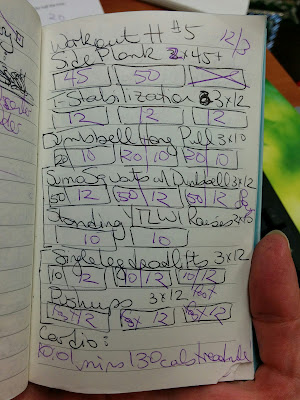 Workout # #5 12/3
Side Plank 2x45+
45 50
T-Stabilization 3x12
12 12 12
Dumbbell Hang Pull 3x10
20 10 20 10 20 10
Sumo Squats w/ Dumbell 3x12
50 12 50 12 50 12
Standing YTLWI Raises 2x10
10 10
Single leg deadlifts 3x12
10 12 40 12 10/12
Pushups 3x12
12 12 12
Cardio:
10:01 mins 130 cals treadmile